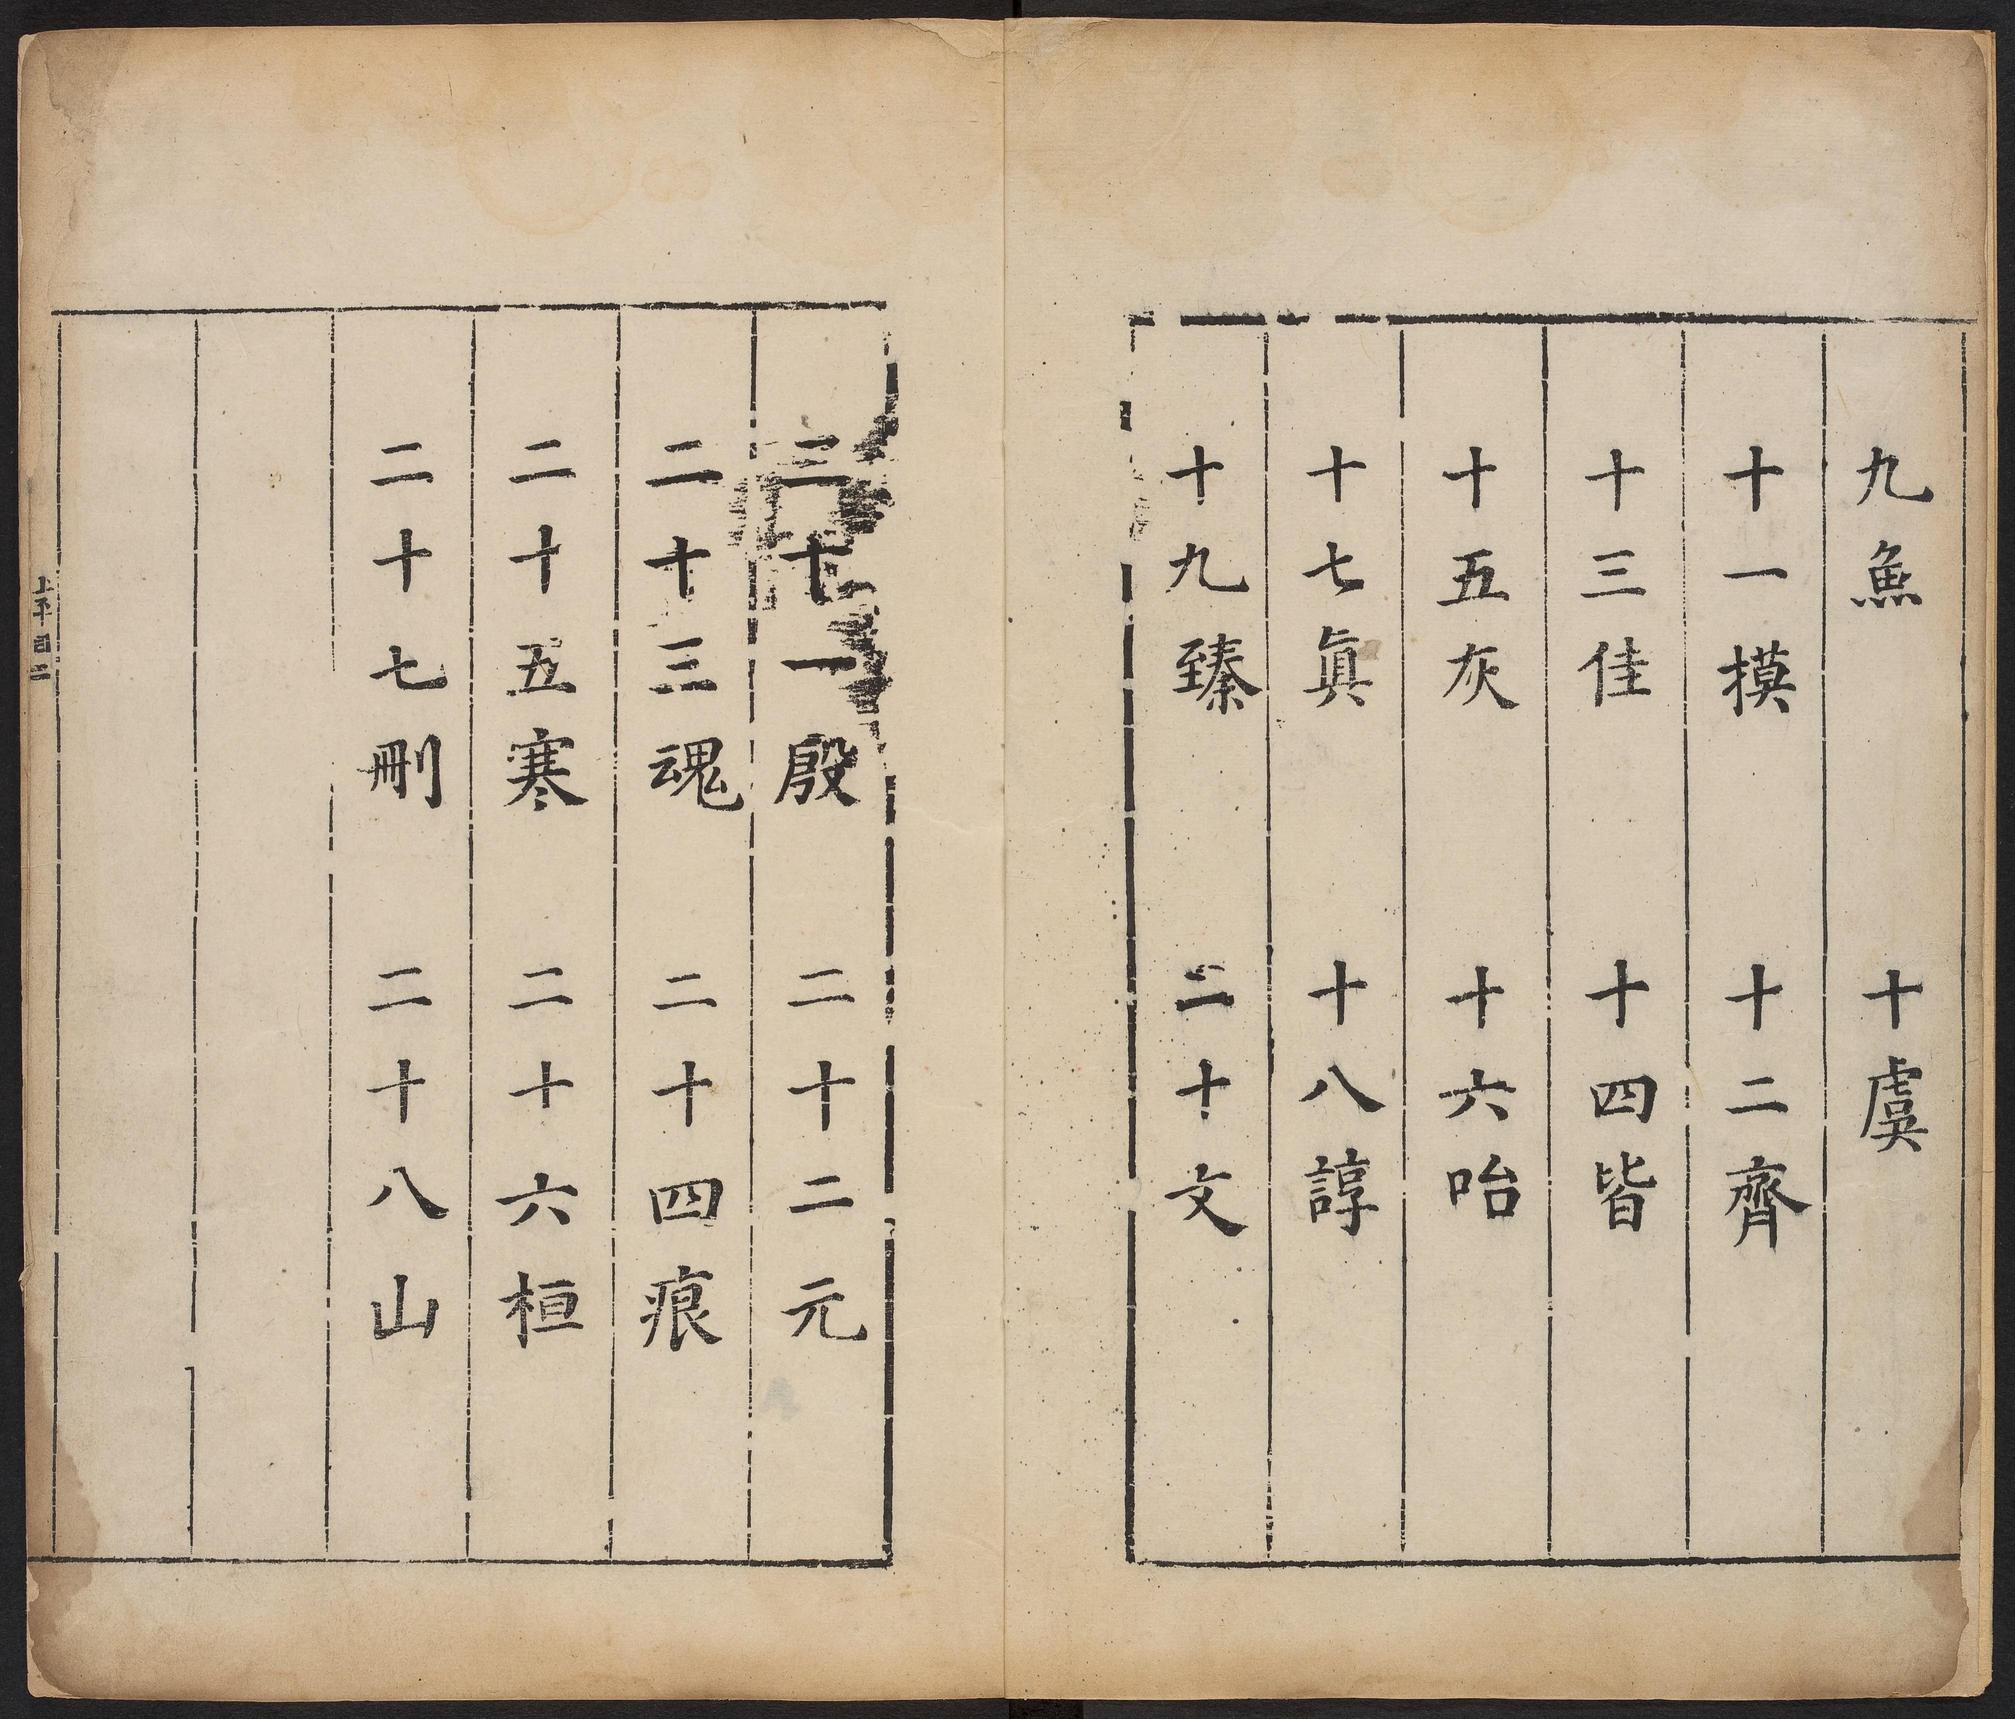 九魚　十虞
十一模　十二齊
十三佳　十四皆
十五灰　十六咍
十七眞　十八諄
十九臻　二十文
二十一殷　二十二元
二十三魂　二十四痕
二十五寒　二十六桓
二十七刪　二十八山
上平目二